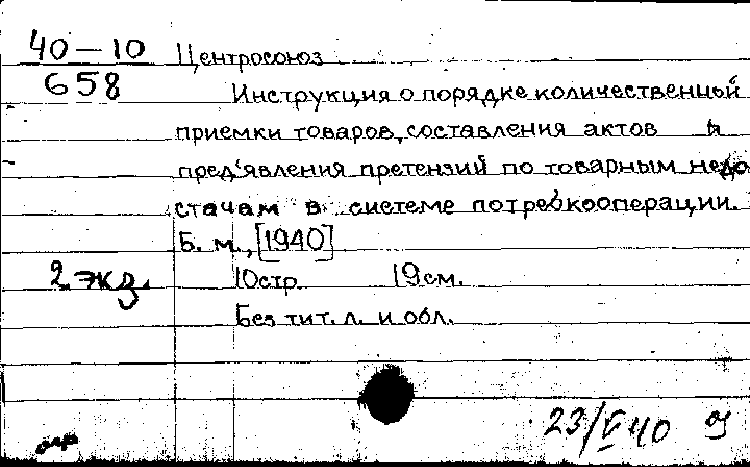 40-10 Центросоюз
658
Инструкция о порядке количественный
приемки товаров, составления актов и
пред'явления претензий по товарным недо
стачам в системе потребкооперации.
Б. м., [1940]
2 экз. 10стр. 19см.
Без тит. л. и обл.
23/V 40